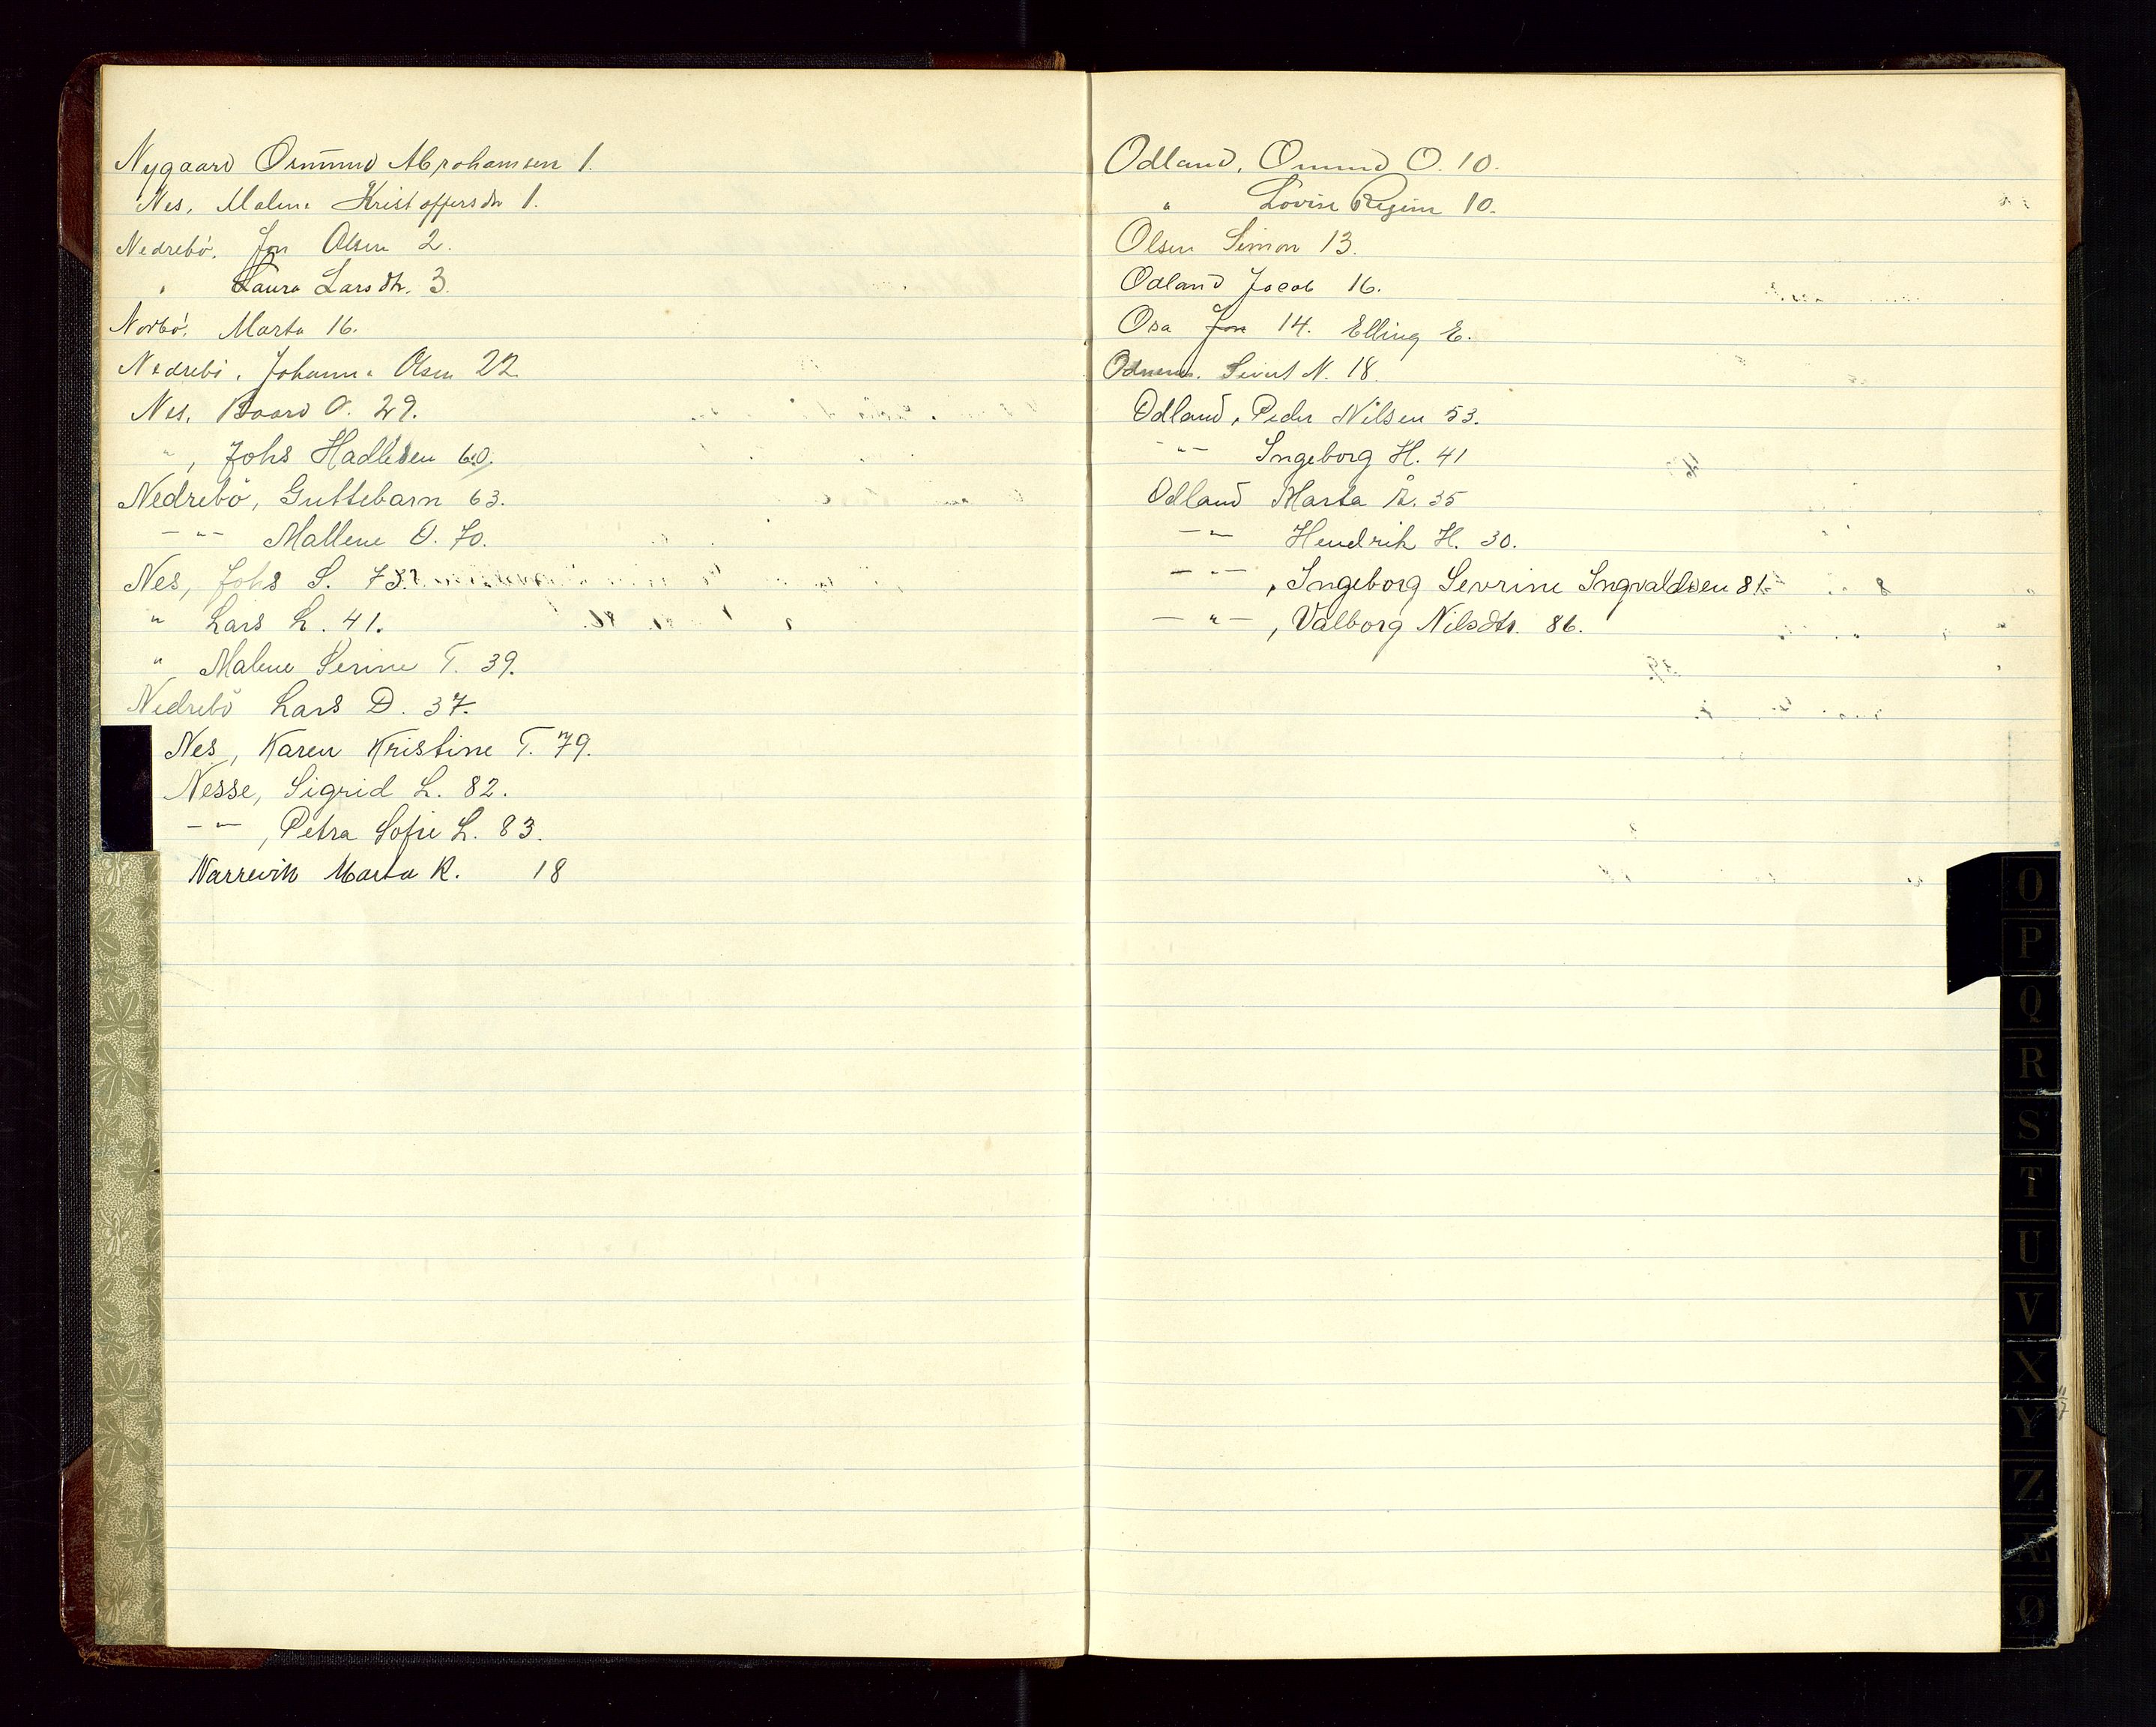 Nygaard Osmund Abrahamsen 1.
Nes, Malene Kristoffersdtr 1.
Nedrebö, Jon Olsen 2.
" Laura Larsdtr. 3.
Norbö, Marta 16.
Nedrebö, Johanne Olsen 22
Nes, Baard O. 29.
" , Johs Hadlesen 60.
Nedrebö, Guttebarn 63.
-"- Mallene O. 70.
Nes, Johs S. 73.
" Lars L. 41.
" Malene Serine T. 39.
Nedrebö Lars D. 37.
Nes, Karen Kristine T. 79.
Nesse, Sigrid L. 82.
-"- , Petra Sofie L. 83.
Narrevik Marta R. 18
Odland, Omund O. 10.
" Lovise Regine 10.
Olsen Simon 13.
Odland Jacob 16.
Osa Jon 14. Elling E.
Odnenes. Sivert N. 18.
Odland, Peder Nilsen 53.
-"- Ingeborg H. 41
Odland Marta Å. 35
-"- Hendrik H. 30.
-"- , Ingeborg Sevrine Ingvaldsen 81.
-"- , Valborg Nilsdtr. 86.
O
P
Q
R
S
T
U
V
X
Y
Z
Æ
Ø